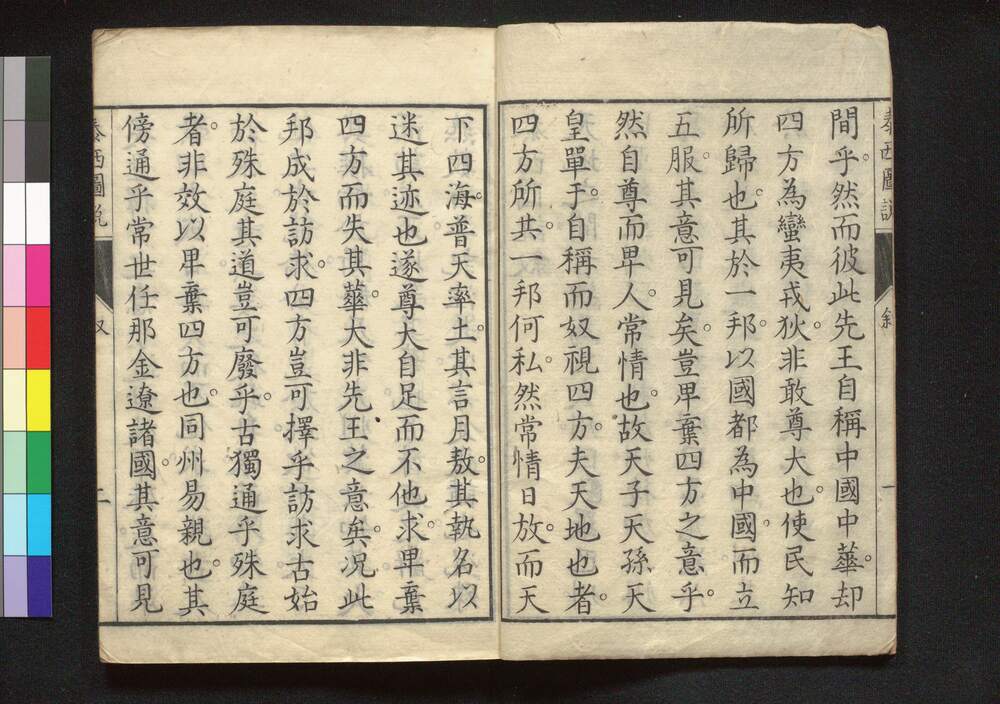 泰西圖説
敘
一
間乎。然而彼此先王自稱中國中華。却
四方為蠻夷戎狄。非敢尊大也。使民知
所歸也。其於一邦。以國都為中國。而立
五服。其意可見矣。豈卑棄四方之意乎。
然自尊而卑人。常情也。故天子天孫天
皇單于。自稱而奴視四方。夫天地也者。
四方所共。一邦何私。然常情日放。而天
下四海。普天率土。其言月敖。其執名以
迷其迹也。遂尊大自足而不他求。卑棄
四方而失其華。大非先王之意矣。况此
邦成於訪求。四方豈可擇乎。訪求古始
於殊庭。其道豈可廢乎。古獨通乎殊庭
者。非效以卑棄四方也。同州易親也。其
傍通乎常世任那金遼諸國。其意可見
泰西圖説
叙
二